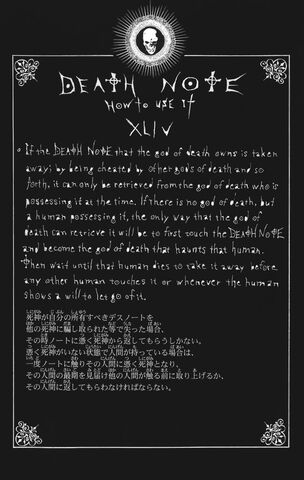 DEATH NOTE
HOW TO USE IT
XLIV
○ If the DEATH NOTE that the god of death owns is taken
away; by being cheated by other gods of death and so
forth, it can only be retrieved from the god of death who is
possessing it at the time. If there is no god of death, but
a human possessing it, the only way that the god of
death can retrieve it will be to first touch the DEATH NOTE
and become the god of death that haunts that human.
Then wait until that human dies to take it away before
any other human touches it or whenever the human
shows a will to let go of it.
死神が自分の所有すべきデスノートを
他の死神に騙し取られた等で失った場合、
その時ノートに憑く死神から返してもらうしかない。
憑く死神がいない状態で人間が持っている場合は、
一度ノートに触りその人間に憑く死神となり、
その人間の最期を見届け他の人間が触る前に取り上げるか、
その人間に返してもらわなければならない。